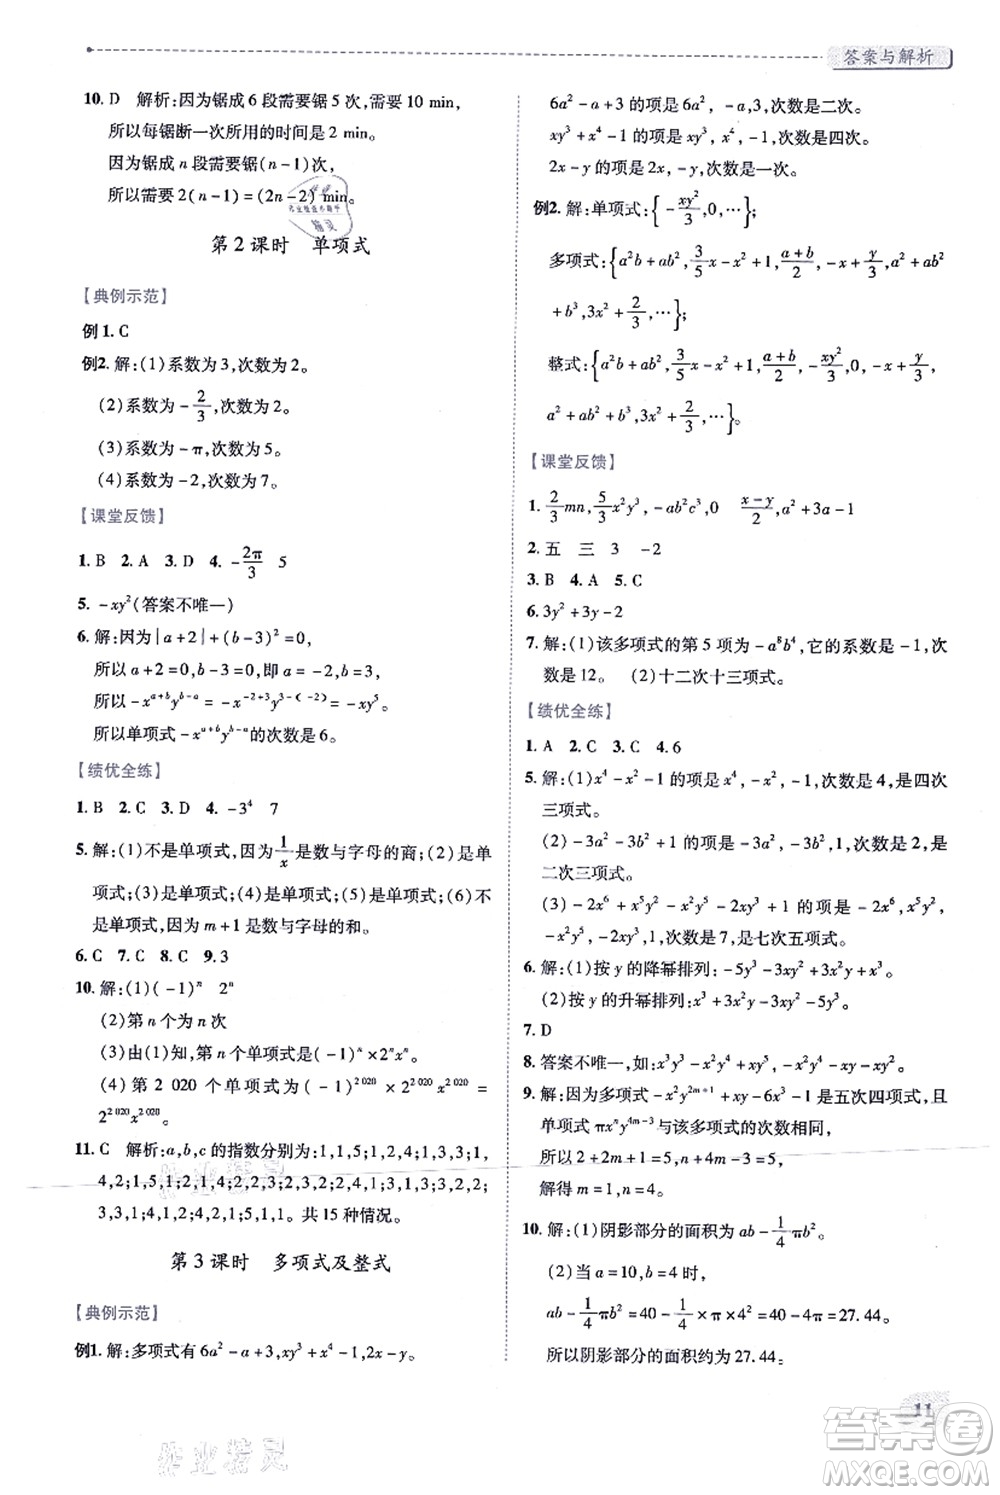 答案与解析
10. D　解析:因为锯成 6 段需要锯 5 次,共需要 10 min,
所以每锯断一次所用的时间是 2 min。
因为锯成 n 段需要锯(n－1)次,
所以需要 2(n－1)＝(2n－2) min。
第 2 课时　单项式
【典例示范】
例 1. C
例2. 解:(1)系数为 3,次数为 2。
(2)系数为－2/3,次数为 2。
(3)系数为－π,次数为 5。
(4)系数为－2,次数为 7。
【课堂反馈】
1. B　2. A　3. D　4. －2π/3　5
5. －xy²(答案不唯一)
6. 解:因为|a＋2|＋(b－3)²＝0,
所以 a＋2＝0,b－3＝0,即 a＝－2,b＝3。
所以－x^(a＋b)y^(b－a)＝－x^(－2＋3)y^(3－(－2))＝－xy⁵。
所以单项式－x^(a＋b)y^(b－a)的次数为 6。
【绩优全练】
1. B　2. C　3. D　4. －3⁴　7
5. 解:(1)不是单项式,因为1/x是数与字母的商;(2)是单
项式;(3)是单项式;(4)是单项式;(5)是单项式;(6)不
是单项式,因为 m＋1 是数与字母的和。
6. C　7. C　8. C　9. 3
10. 解:(1)(－1)ⁿ　2ⁿ
(2)第 n 个为 n 次
(3)由(1)知,第 n 个单项式是(－1)ⁿ×2ⁿxⁿ。
(4)第 2 020 个单项式为(－1)^(2 020)×2^(2 020)x^(2 020)＝
2^(2 020)x^(2 020)。
11. C　解析:a,b,c 的指数分别为:1,1,5;1,2,4;1,3,3;1,
4,2;1,5,1;2,1,4;2,2,3;2,3,2;2,4,1;3,1,3;3,2,2;
3,3,1;4,1,2;4,2,1;5,1,1。共 15 种情况。
第 3 课时　多项式及整式
【典例示范】
例1. 解:多项式有 6a²－a＋3,xy³＋x⁴－1,2x－y。
6a²－a＋3 的项是 6a²,－a,3,次数是二次。
xy³＋x⁴－1 的项是 xy³,x⁴,－1,次数是四次。
2x－y 的项是 2x,－y,次数是一次。
例2. 解:单项式:{－xy²/2,0,…};
多项式:{a²b＋ab²,3/5x－x²＋1,(a＋b)/2,－x＋y/3,a²＋ab²
＋b³,3x²＋2/3,…};
整式:{a²b＋ab²,3/5x－x²＋1,(a＋b)/2,－xy²/2,0,－x＋y/3,
a²＋ab²＋b³,3x²＋2/3,…}。
【课堂反馈】
1. 2/3mn,5/3x²y³,－ab²c³,0　(x－y)/2,a²＋3a－1
2. 五　三　3　－2
3. B　4. A　5. C
6. 3y²＋3y－2
7. 解:(1)该多项式的第 5 项为－a⁸b⁴,它的系数是－1,次
数是 12。　(2)十二次十三项式。
【绩优全练】
1. A　2. C　3. C　4. 6
5. 解:(1)x⁴－x²－1 的项是 x⁴,－x²,－1,次数是 4,是四次
三项式。
(2)－3a²－3b²＋1 的项是－3a²,－3b²,1,次数是 2,是
二次三项式。
(3)－2x⁶＋x⁵y²－x²y⁵－1 的项是－2x⁶,x⁵y²,
－x²y⁵,－1,次数是 7,是七次五项式。
6. 解:(1)按 y 的降幂排列:－5y³－3xy²＋3x²y＋x³。
(2)按 y 的升幂排列:x³＋3x²y－3xy²－5y³。
7. D
8. 答案不唯一,如:x³y³－x²y⁴＋xy⁵,－x²y⁴－xy－xy⁵。
9. 解:因为多项式－x²y^(2m＋1)＋xy－6x³－1 是五次四项式,且
单项式 πxⁿy^(4m－3)与该多项式的次数相同,
所以 2＋2m＋1＝5,n＋4m－3＝5,
解得 m＝1,n＝4。
10. 解:(1)阴影部分的面积为 ab－1/4πb²。
(2)当 a＝10,b＝4 时,
ab－1/4πb²＝40－1/4×π×4²≈40－4×3.14＝27.44。
所以阴影部分的面积约为 27.44。
11
答案圈
MXQE.COM
作业精灵